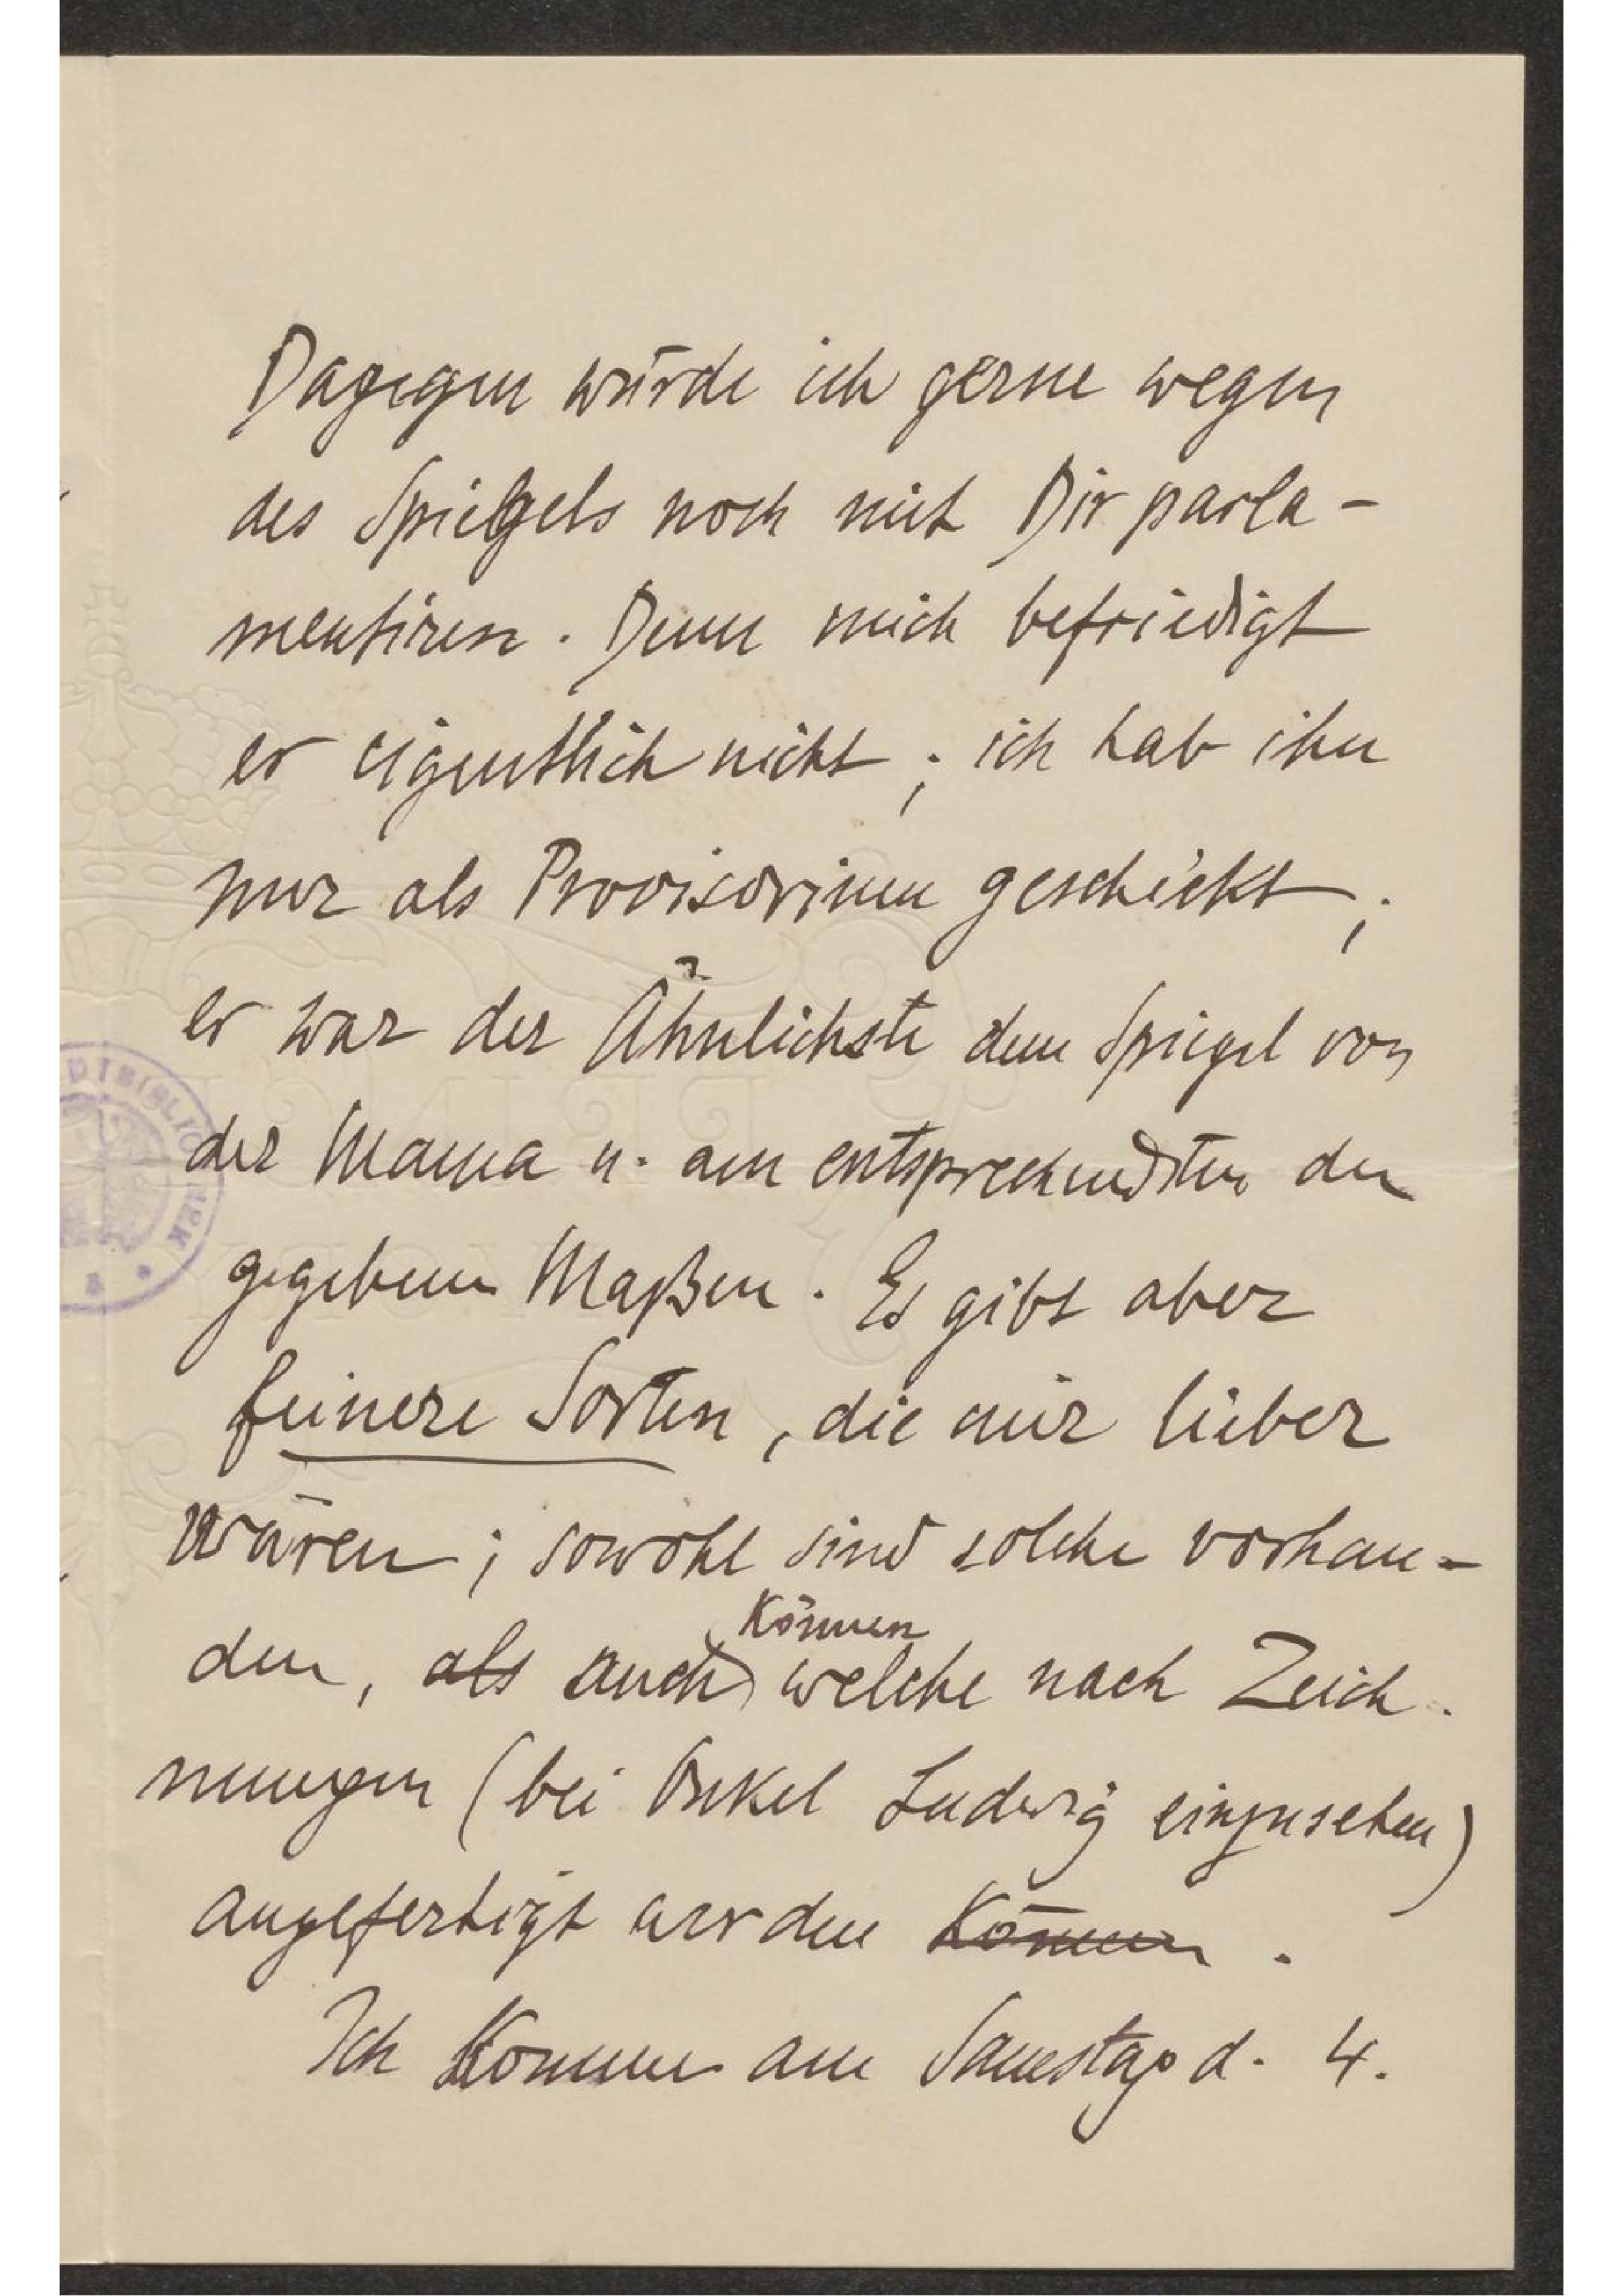 Dagegen würde ich gerne wegen
des Spiegels noch mit Dir parla-
mentiren. Denn mich befriedigt
er eigentlich nicht; ich hab ihn
nur als Provisorium geschickt;
er war der Ähnlichste dem Spiegel von
der Mama u. am entsprechendsten den
gegebenen Maßen. Es gibt aber
feinere Sorten, die mir lieber
wären; sowohl sind solche vorhan-
den, als auch können welche nach Zeich-
nungen (bei Onkel Ludwig einzusehen)
angefertigt werden können.
Ich komme am Samstag d. 4.